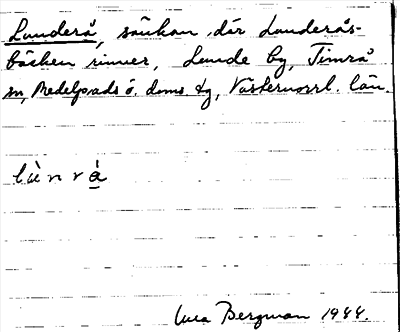 Lunderå, sänkan där Lunderås-
bäcken rinner, Lunde by, Timrå
sn, Medelpads ö. doms. tg, Västernorrl. län.
lùnrå̀
Bergman 1944.